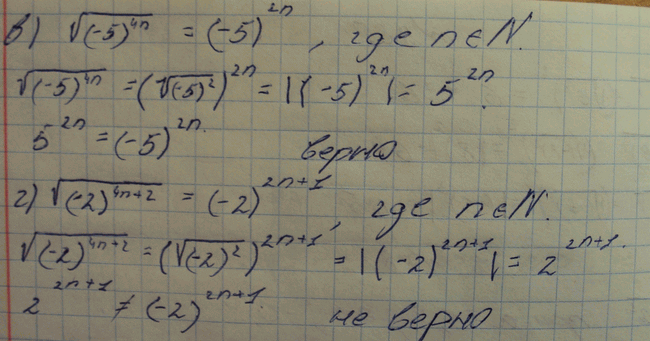 в) √(-5)^4n = (-5)^2n, где n∈N.
√(-5)^4n = (√(-5)^2)^2n = |(-5)^2n| = 5^2n.
5^2n = (-5)^2n. верно
г) √(-2)^4n+2 = (-2)^2n+1, где n∈N.
√(-2)^4n+2 = (√(-2)^2)^2n+1 = |(-2)^2n+1| = 2^2n+1.
2^2n+1 ≠ (-2)^2n+1. не верно